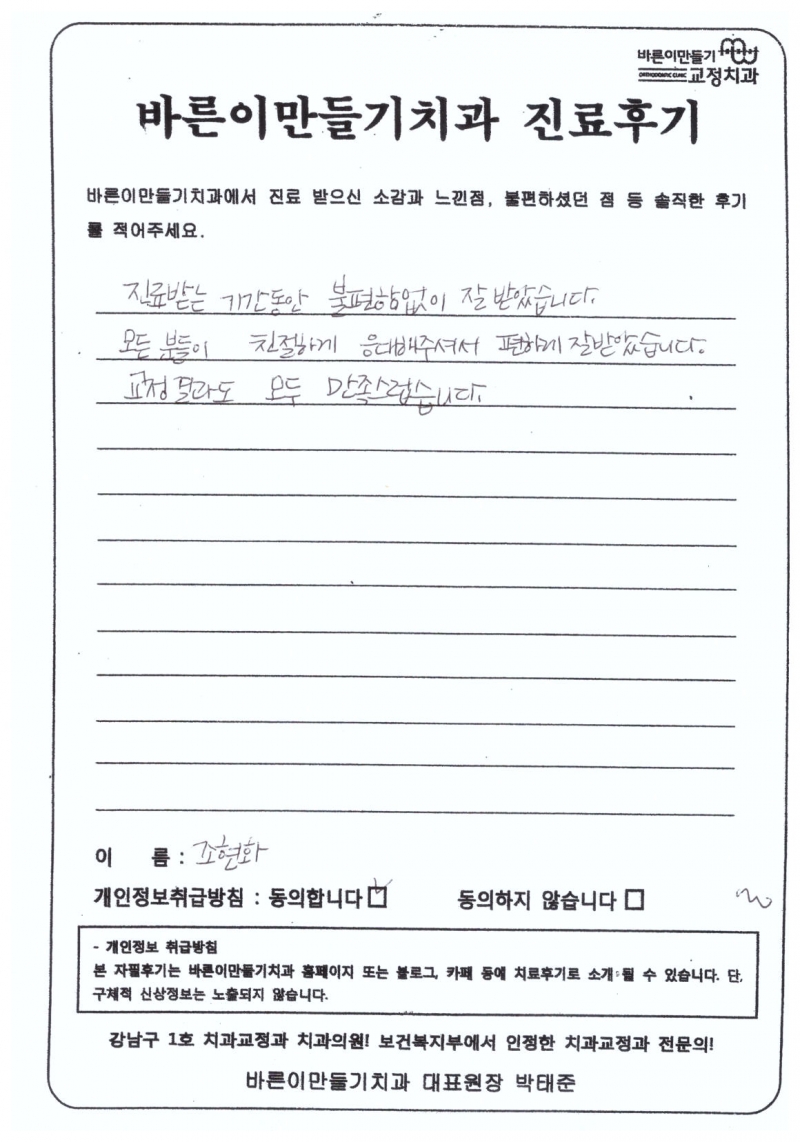 바른이만들기
ORTHODONTIC CLINIC 교정치과
바른이만들기치과 진료후기
바른이만들기치과에서 진료 받으신 소감과 느낀점, 불편하셨던 점 등 솔직한 후기
를 적어주세요.
진료받는 기간동안 불편함없이 잘 받았습니다.
모든 분들이 친절하게 응대해주셔서 편하게 잘받았습니다.
교정결과도 모두 만족스럽습니다.
이 름 : 조현화
개인정보취급방침 : 동의합니다 ☑ 동의하지 않습니다 □
- 개인정보 취급방침
본 자필후기는 바른이만들기치과 홈페이지 또는 블로그, 카페 등에 치료후기로 소개 될 수 있습니다. 단,
구체적 신상정보는 노출되지 않습니다.
강남구 1호 치과교정과 치과의원! 보건복지부에서 인정한 치과교정과 전문의!
바른이만들기치과 대표원장 박태준